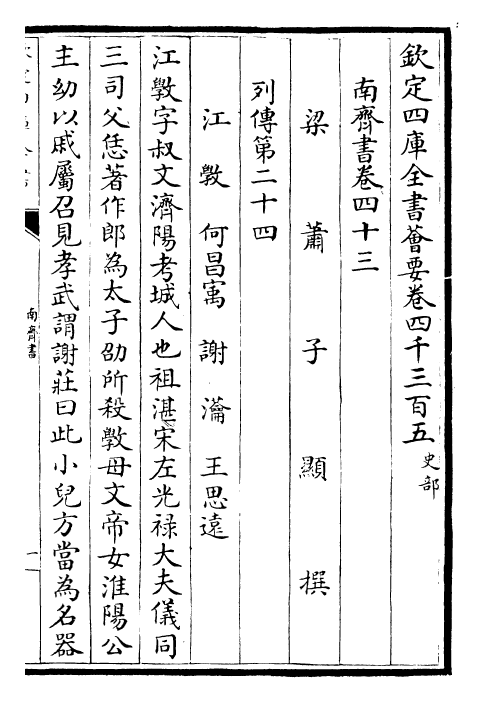 欽定四庫全書薈要卷四千三百五 史部
南齊書卷四十三
梁 蕭 子 顯 撰
列傳第二十四
江斆 何昌㝢 謝瀹 王思遠
江斆字叔文濟陽考城人也祖湛宋左光祿大夫儀同
三司父恁著作郎為太子劭所殺斆母文帝女淮陽公
主幼以戚屬召見孝武謂謝莊曰此小兒方當為名器
南齊書
一